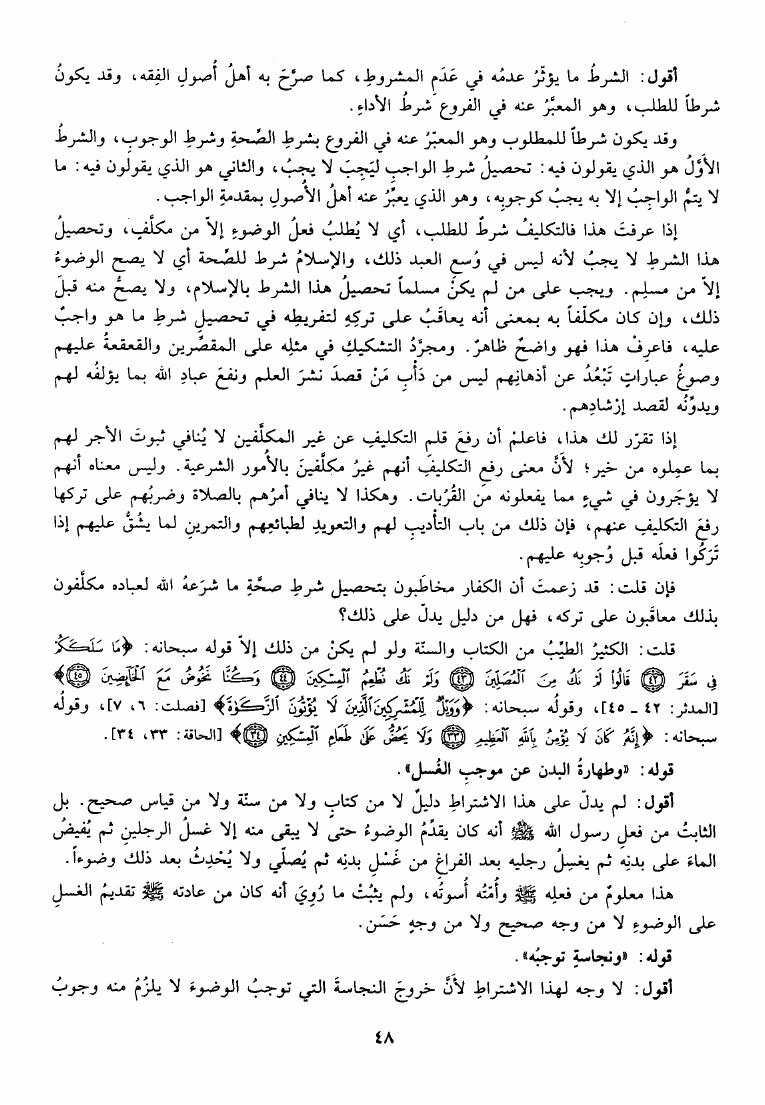 أقول: الشرطُ ما يؤثّرُ عدمُه في عَدَمِ المشروطِ، كما صرَّحَ به أهلُ أُصولِ الفِقه، وقد يكونُ
شرطاً للطلب، وهو المعبَّرُ عنه في الفروع شرطُ الأداءِ.
وقد يكون شرطاً للمطلوب وهو المعبّرُ عنه في الفروع بشرطِ الصِّحةِ وشرطِ الوجوبِ، والشرطُ
الأوَّلُ هو الذي يقولون فيه: تحصيلُ شرطِ الواجبِ ليَجِبَ لا يجبُ، والثاني هو الذي يقولون فيه: ما
لا يتمُّ الواجِبُ إلا به يجبُ كوجوبِه، وهو الذي يعبِّرُ عنه أهلُ الأُصولِ بمقدمةِ الواجب.
إذا عرفتَ هذا فالتكليفُ شرطٌ للطلب، أي لا يُطلبُ فعلُ الوضوءِ إلاّ من مكلَّفٍ، وتحصيلُ
هذا الشرطِ لا يجبُ لأنه ليس في وُسعِ العبد ذلك، والإسلامُ شرط للصِّحة أي لا يصح الوضوءُ
إلاّ من مسلِم. ويجب على من لم يكنْ مسلماً تحصيلُ هذا الشرط بالإسلام، ولا يصحُّ منه قبلَ
ذلك، وإن كان مكلَّفاً به بمعنى أنه يعاقَبُ على تركِهِ لتفريطِه في تحصيلِ شرطِ ما هو واجبٌ
عليه، فاعرِفْ هذا فهو واضحٌ ظاهرٌ. ومجرَّدُ التشكيكِ في مثلِه على المقصِّرين والقعقعةُ عليهم
وصوغُ عباراتٍ تَبْعُدُ عن أذهانِهم ليس من دَأْبِ مَنْ قصدَ نشرَ العلم ونفعَ عبادِ الله بما يؤلفُه لهم
ويدوِّنُه لقصد إرْشادِهم.
إذا تقرّر لك هذا، فاعلمْ أن رفعَ قلمِ التكليفِ عن غير المكلَّفين لا يُنافي ثبوتَ الأجر لهم
بما عمِلوه من خير؛ لأنَّ معنى رفعِ التكليفِ أنهم غيرُ مكلَّفينَ بالأمورِ الشرعية. وليس معناه أنهم
لا يؤجَرون في شيءٍ مما يفعلونه من القُرُبات. وهكذا لا ينافي أمرُهم بالصلاة وضربُهم على تركها
رفعَ التكليفِ عنهم، فإن ذلك من باب التأديبِ لهم والتعويدِ لطبائعِهم والتمرينِ لما يشُقُّ عليهم إذا
تَرَكُوا فعلَه قبل وُجوبِه عليهم.
فإن قلت: قد زعمتَ أن الكفار مخاطَبون بتحصيل شرطِ صحَّةِ ما شرَعهُ الله لعباده مكلَّفون
بذلك معاقَبون على تركه، فهل من دليل يدلّ على ذلك؟
قلت: الكثيرُ الطيِّبُ من الكتاب والسنّة ولو لم يكنْ من ذلك إلاّ قوله سبحانه: ﴿مَا سَلَكَكُمْ
فِي سَقَرَ ﴿٤٢﴾ قَالُوا لَمْ نَكُ مِنَ الْمُصَلِّينَ ﴿٤٣﴾ وَلَمْ نَكُ نُطْعِمُ الْمِسْكِينَ ﴿٤٤﴾ وَكُنَّا نَخُوضُ مَعَ الْخَائِضِينَ ﴿٤٥﴾﴾
[المدثر: ٤٢ - ٤٥]، وقولُه سبحانه: ﴿وَوَيْلٌ لِلْمُشْرِكِينَ الَّذِينَ لَا يُؤْتُونَ الزَّكَوٰةَ﴾ [فصلت: ٦، ٧]، وقولُه
سبحانه: ﴿إِنَّهُ كَانَ لَا يُؤْمِنُ بِاللَّهِ الْعَظِيمِ ﴿٣٣﴾ وَلَا يَحُضُّ عَلَىٰ طَعَامِ الْمِسْكِينِ ﴿٣٤﴾﴾ [الحاقة: ٣٣، ٣٤].
قوله: «وطهارةُ البدن عن موجبِ الغُسل».
أقول: لم يدلّ على هذا الاشتراطِ دليلٌ لا من كتابٍ ولا من سنّة ولا من قياس صحيح. بل
الثابتُ من فعلِ رسول الله ﷺ أنه كان يقدِّمُ الوضوءُ حتى لا يبقى منه إلا غسلُ الرجلينِ ثم يُفيضُ
الماءَ على بدنِه ثم يغسِلُ رجليه بعد الفراغِ من غَسْلِ بدنِه ثم يُصلّي ولا يُحْدِثُ بعد ذلك وضوءاً.
هذا معلومٌ من فعلِه ﷺ وأمَّتُه أُسوتُه، ولم يثبُتْ ما رُوِيَ أنه كان من عادته ﷺ تقديمُ الغسلِ
على الوضوءِ لا من وجه صحيح ولا من وجهٍ حَسَن.
قوله: «ونجاسةٍ توجبُه».
أقول: لا وجه لهذا الاشتراطِ لأنَّ خروجَ النجاسةَ التي توجبُ الوضوءَ لا يلزُمُ منه وجوبُ
٤٨